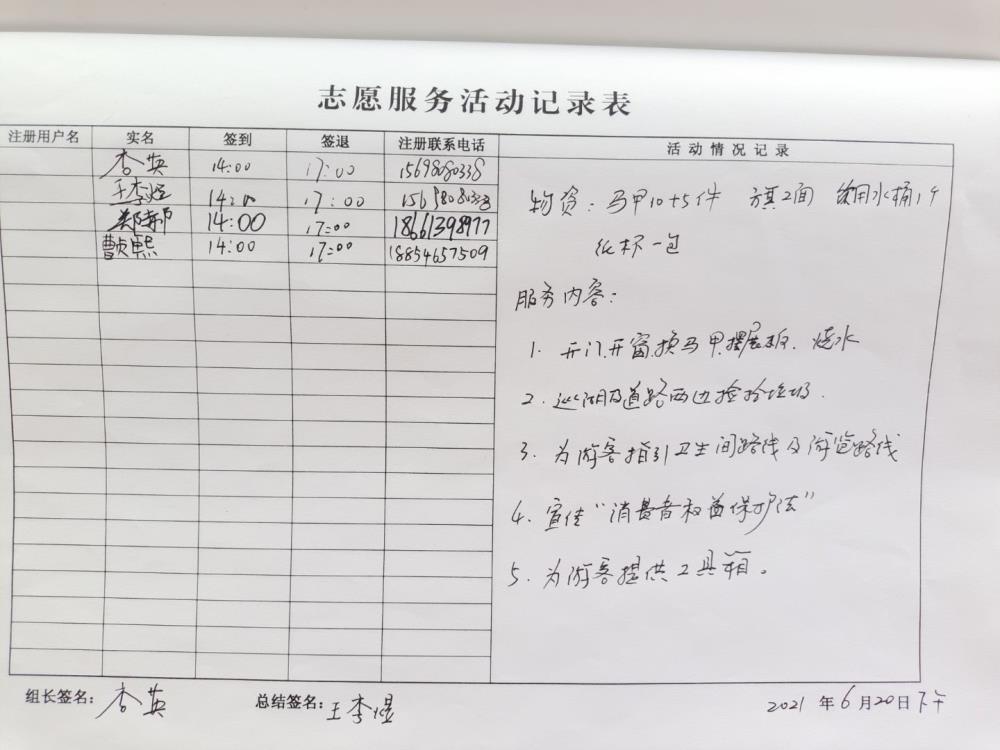 志愿服务活动记录表
注册用户名 实名 签到 签退 注册联系电话 活动情况记录
李英 14:00 17:00 15698080338
王李煜 14:00 17:00
14:00 17:00 18661398977
曹贞熙 14:00 17:00 18854657509
物资：马甲10+5件 旗2面 饮用水桶1个
纸杯一包
服务内容：
1. 开门.开窗.换马甲.摆展板. 烧水
2. 巡湖及道路两边捡拾垃圾.
3. 为游客指引卫生间路线及游览路线
4. 宣传“消费者权益保护法”
5. 为游客提供工具箱。
组长签名：李英 总结签名：王李煜 2021年6月20日下午